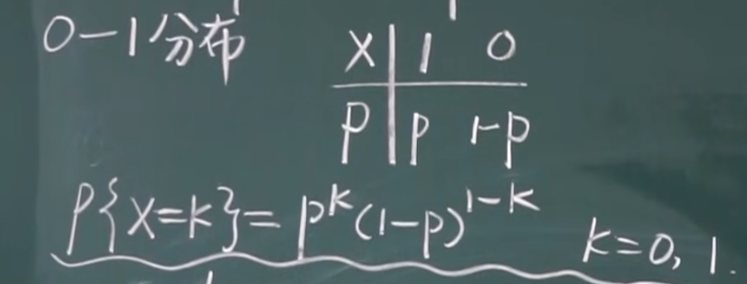 0-1分布
X | 1 0
P | p 1-p
P{X=k}=p^k(1-p)^{1-k} k=0, 1.